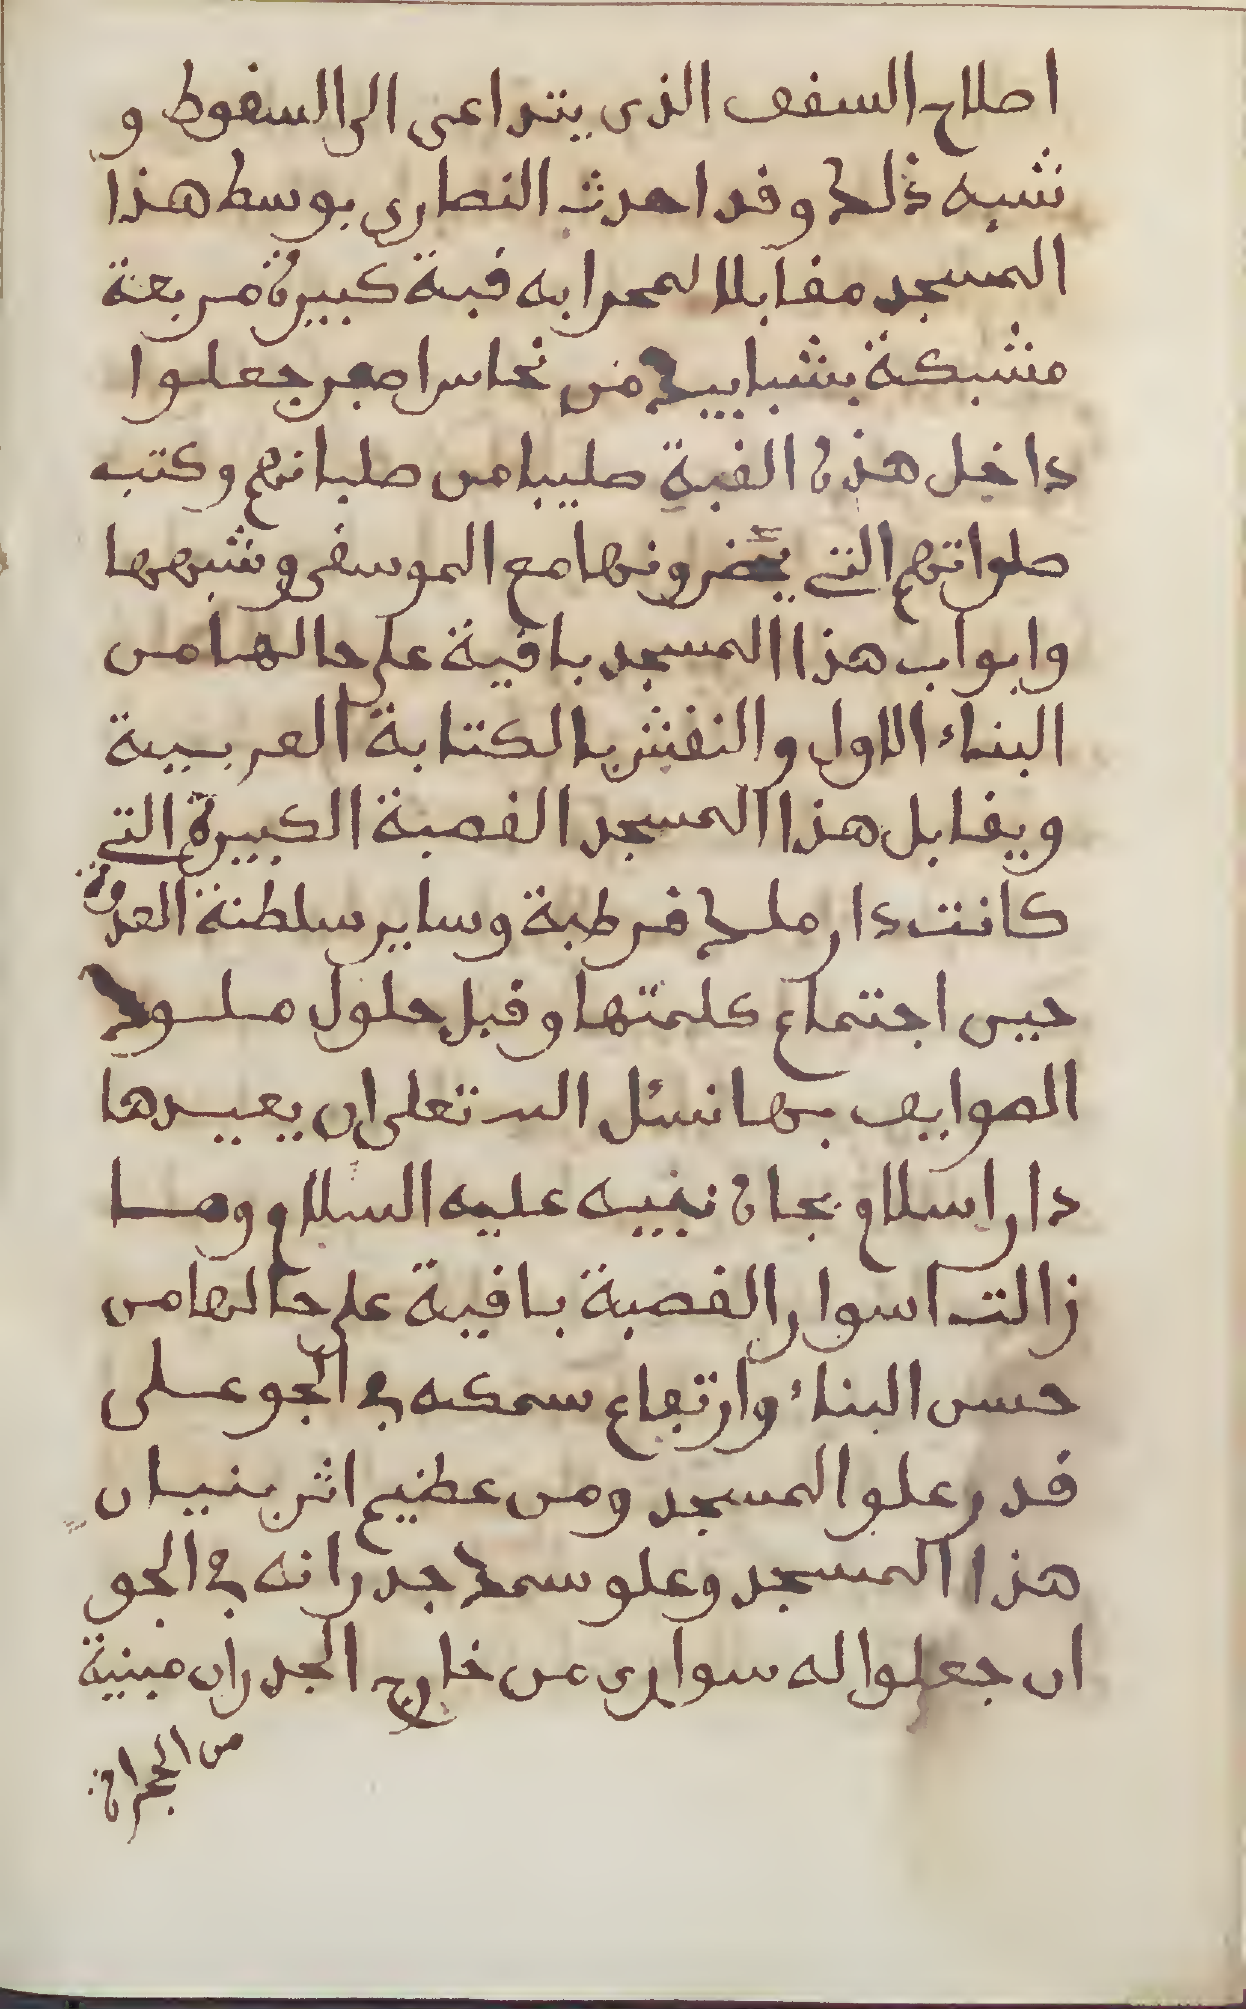 اصلاح السقف الذى يتداعى الى السقوط و
شبه ذلك وقد احدث النصارى بوسط هذا
المسجد مقابلا لمحرابه قبة كبيرة مربعة
مشبكة بشبابيك من نحاس اصفر جعلوا
داخل هذه القبة صليبا من صلبانهم وكتب
صلواتهم التى يحضرونها مع الموسقى وشبهها
وابواب هذا المسجد باقية على حالها من
البناء الاول والنقش بالكتابة العربية
ويقابل هذا المسجد القصبة الكبيرة التى
كانت دار ملك قرطبة وساير سلطنة العدوة
حين اجتماع كلمتها وقبل حلول ملوك
الصوايف بها نسئل الله تعلى ان يعيدها
دار اسلام بجاه نبيه عليه السلام وما
زالت اسوار القصبة باقية على حالها من
حسن البناء وارتفاع سمكه فى الجو على
قدر علو المسجد ومن عظيم اثر بنيان
هذا المسجد وعلو سمك جدرانه فى الجو
ان جعلوا له سوارى من خارج الجدران مبنية
من الحجارة